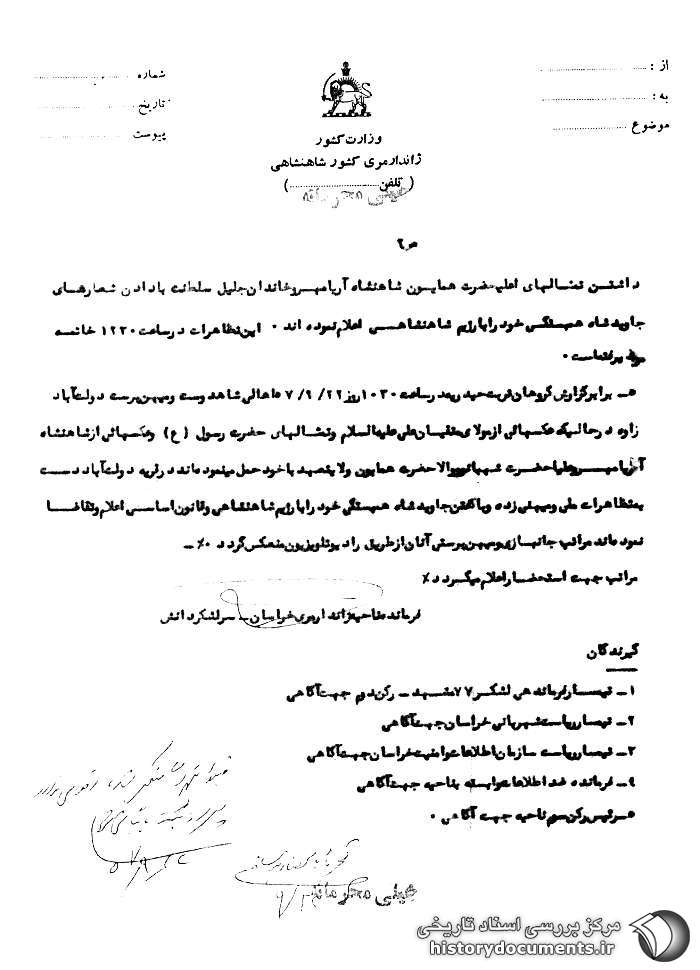 از :
به :
موضوع
شماره
تاریخ
پیوست
وزارت کشور
ژاندارمری کشور شاهنشاهی
( تلفن )
خیلی محرمانه
ص۲
داشتن تمثالهای اعلیحضرت همایون شاهنشاه آریامهر و خاندان جلیل سلطنت با دادن شعارهای
جاوید شاه همبستگی خود را با رژیم شاهنشاهی اعلام نموده اند ۰ این تظاهرات در ساعت ۱۲۳۰ خاتمه
پذیرفته است ۰
۵ـ برابر گزارش گروهان تربت حیدریه در ساعت ۱۰۳۰ روز ۲۲/ ۹/ ۷ اهالی شاهدوست و میهن پرست دولت آباد
زاوه در حالیکه عکسهائی از مولای متقیان علی علیه السلام و تمثالهای حضرت رسول (ع) و عکسهائی از شاهنشاه
آریامهر و علیاحضرت شهبانو و والاحضرت همایون ولایتعهد با خود حمل مینموده اند در قریه دولت آباد دست
به تظاهرات ملی و میهنی زده و با گفتن جاوید شاه همبستگی خود را با رژیم شاهنشاهی و قانون اساسی اعلام و تقاضا
نموده اند مراتب جانبازی و میهن پرستی آنان از طریق رادیو تلویزیون منعکس گردد ۰٪ ـ
مراتب جهت استحضار اعلام میگردد ٪
فرمانده ناحیه ژاندارمری خراسان ـ سرلشکر دانش
گیرندگان
۱ـ تیمسار فرماندهی لشکر ۷۷ مشهد ـ رکن دوم جهت آگاهی
۲ـ تیمسار ریاست شهربانی خراسان جهت آگاهی
۳ـ تیمسار ریاست سازمان اطلاعات و امنیت خراسان جهت آگاهی
۴ـ فرمانده ضد اطلاعات وابسته بناحیه جهت آگاهی
۵ـ رئیس رکن سوم ناحیه جهت آگاهی ۰
خیلی محرمانه
مرکز بررسی اسناد تاریخی
historydocuments.ir